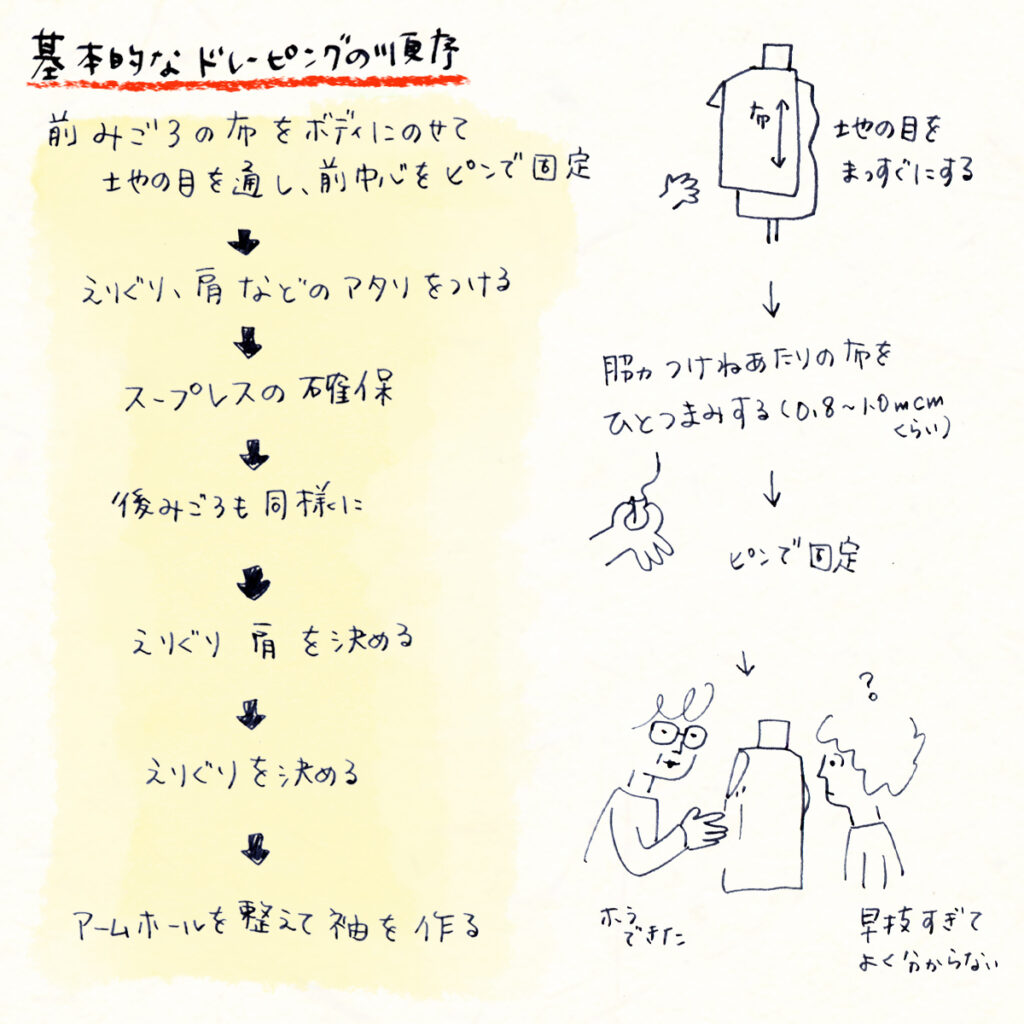 基本的なドレーピングの順序
前みごろの布をボディにのせて
地の目を通し、前中心をピンで固定
えりぐり、肩などのアタリをつける
スープレスの確保
後みごろも同様に
えりぐり 肩 を決める
えりぐりを決める
アームホールを整えて袖を作る
布
地の目を
まっすぐにする
脇つけねあたりの布を
ひとつまみする(0.8〜1.0mcm
くらい)
ピンで固定
?
ホラ
できた
早技すぎて
よく分からない